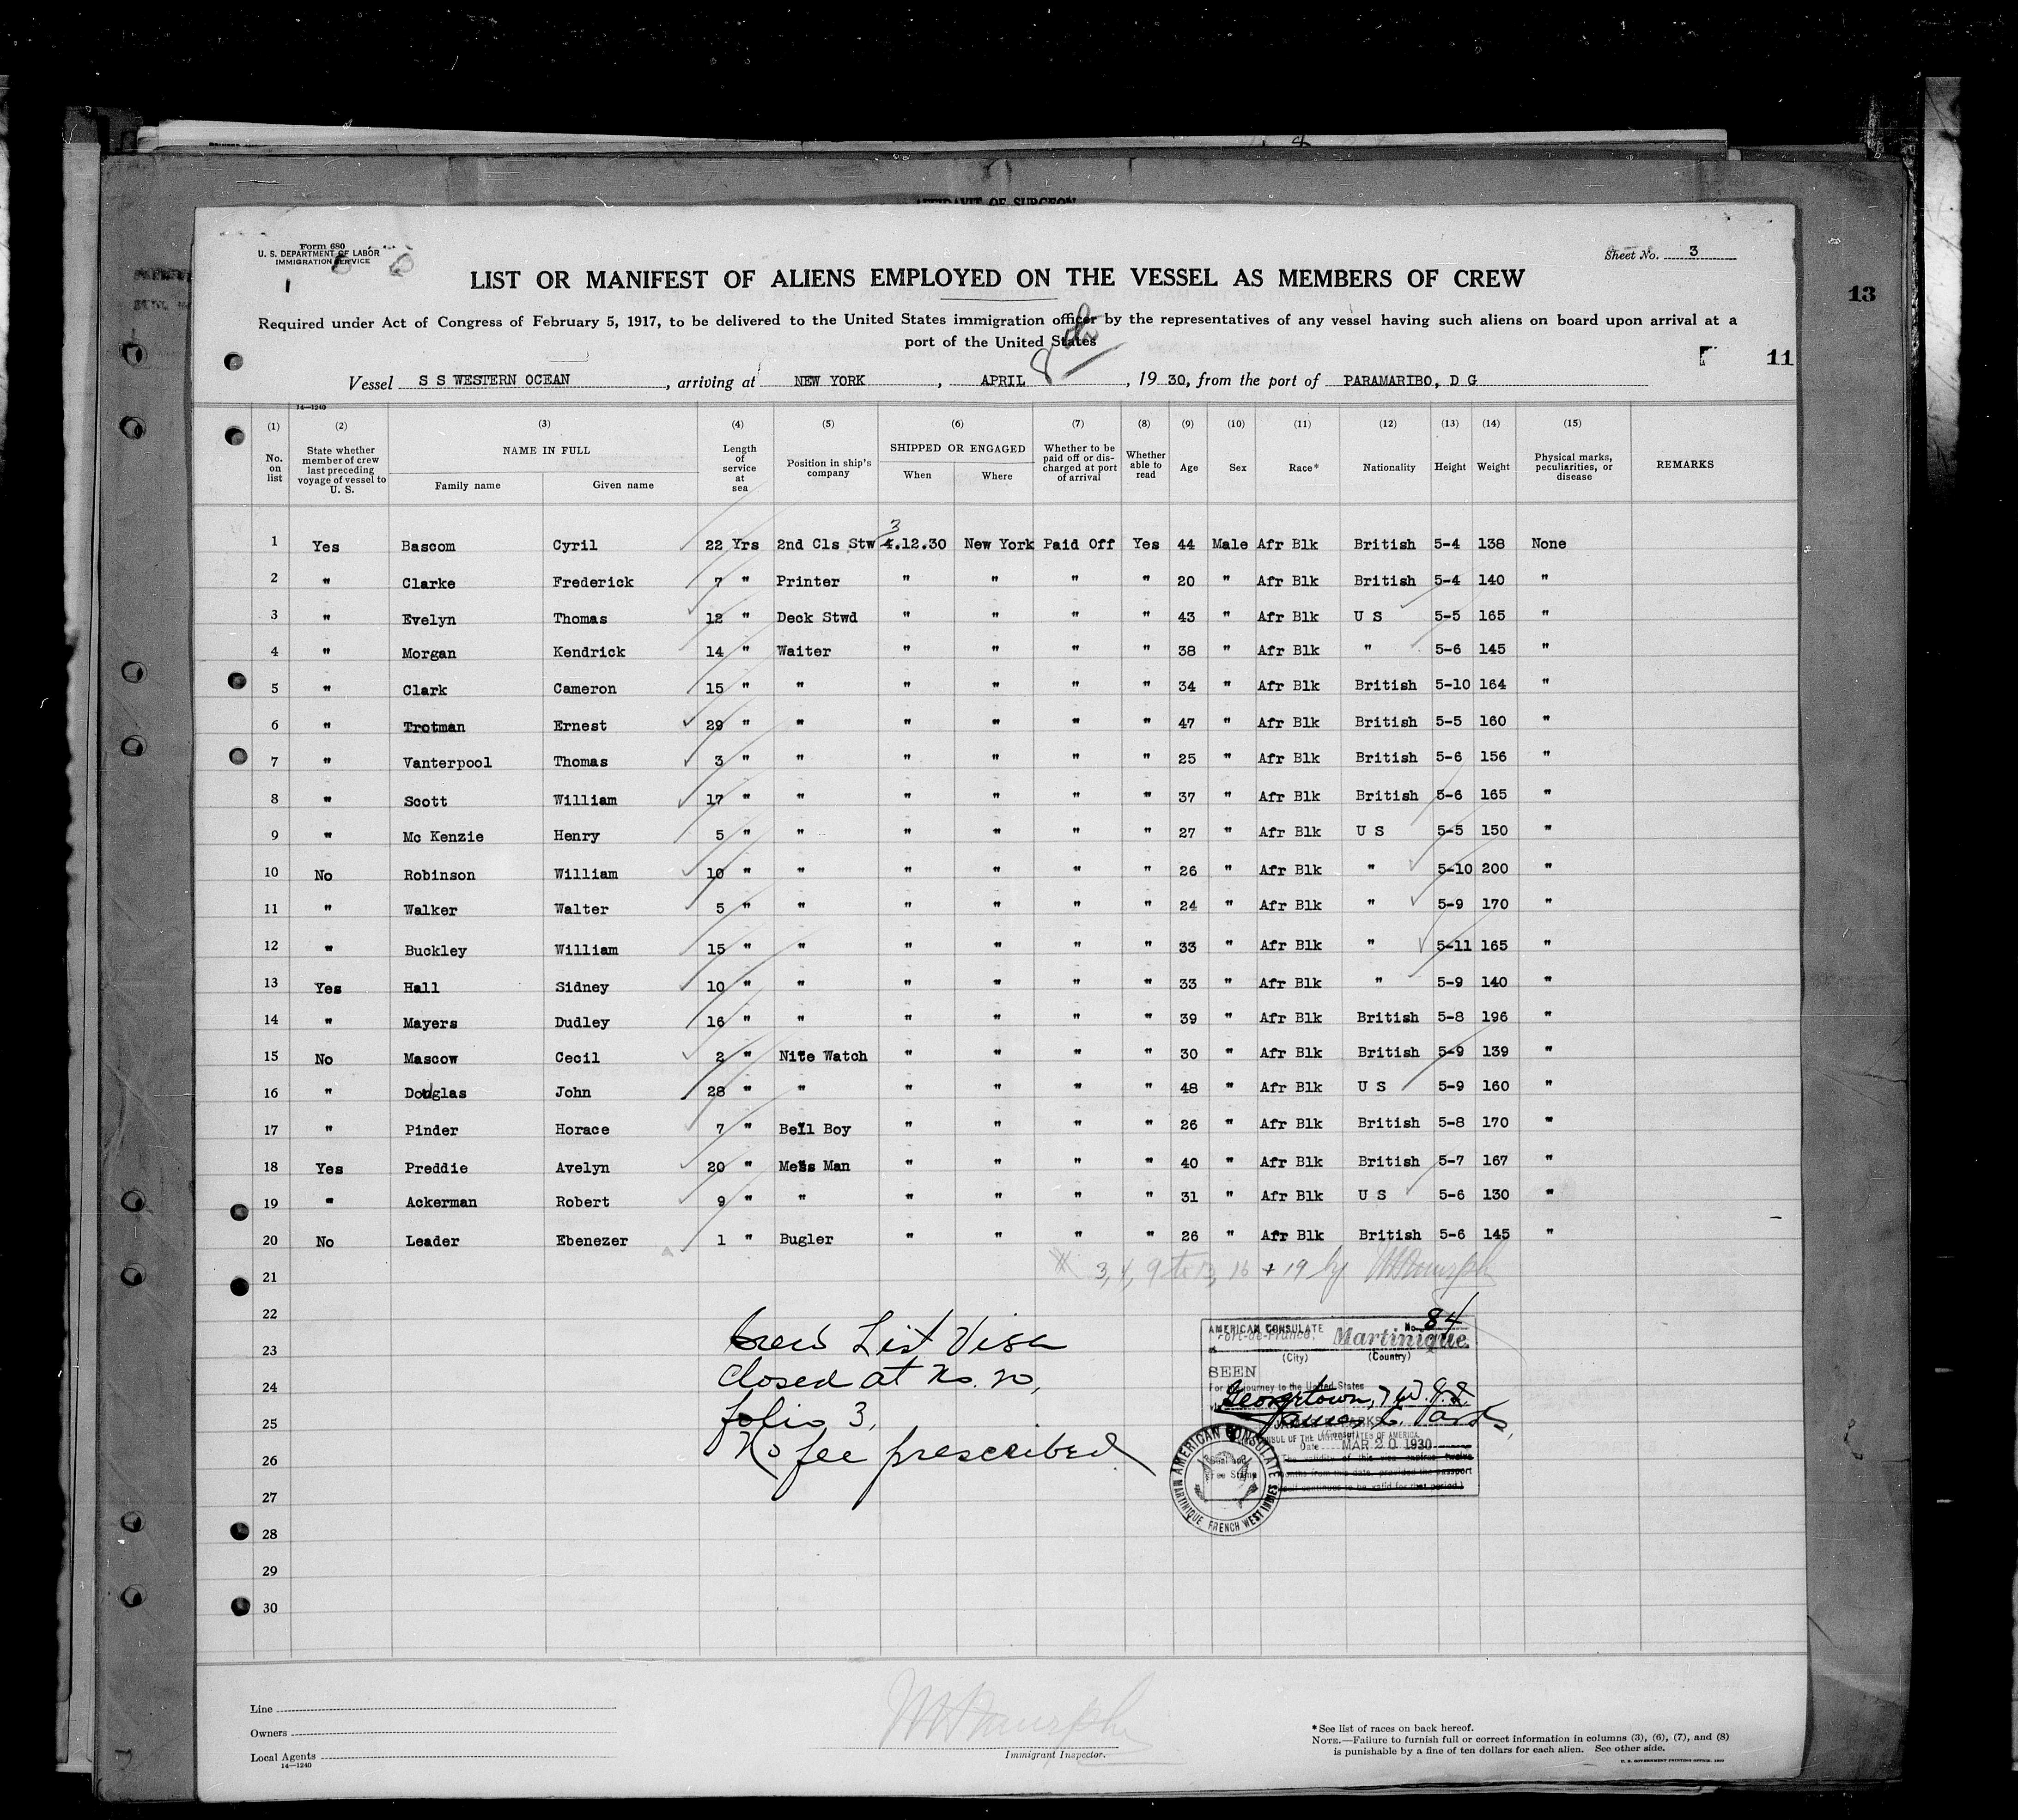 AFFIDAVIT OF SURGEON
Form 680
U. S. DEPARTMENT OF LABOR
IMMIGRATION SERVICE
Sheet No. 3
13
LIST OR MANIFEST OF ALIENS EMPLOYED ON THE VESSEL AS MEMBERS OF CREW
Required under Act of Congress of February 5, 1917, to be delivered to the United States immigration officer by the representatives of any vessel having such aliens on board upon arrival at a
port of the United States
11
Vessel S S WESTERN OCEAN, arriving at NEW YORK, APRIL 8, 1930, from the port of PARAMARIBO, D G
14—1240
(1) (2) (3) (4) (5) (6) (7) (8) (9) (10) (11) (12) (13) (14) (15)
No. on list State whether member of crew last preceding voyage of vessel to U. S. NAME IN FULL Family name Given name Length of service at sea Position in ship's company SHIPPED OR ENGAGED When Where Whether to be paid off or discharged at port of arrival Whether able to read Age Sex Race* Nationality Height Weight Physical marks, peculiarities, or disease REMARKS
3
1 Yes Bascom Cyril 22 Yrs 2nd Cls Stw 4.12.30 New York Paid Off Yes 44 Male Afr Blk British 5-4 138 None
2 " Clarke Frederick 7 " Printer " " " " 20 " Afr Blk British 5-4 140 "
3 " Evelyn Thomas 12 " Deck Stwd " " " " 43 " Afr Blk U S 5-5 165 "
4 " Morgan Kendrick 14 " Waiter " " " " 38 " Afr Blk " 5-6 145 "
5 " Clark Cameron 15 " " " " " " 34 " Afr Blk British 5-10 164 "
6 " Trotman Ernest 29 " " " " " " 47 " Afr Blk British 5-5 160 "
7 " Vanterpool Thomas 3 " " " " " " 25 " Afr Blk British 5-6 156 "
8 " Scott William 17 " " " " " " 37 " Afr Blk British 5-6 165 "
9 " Mc Kenzie Henry 5 " " " " " " 27 " Afr Blk U S 5-5 150 "
10 No Robinson William 10 " " " " " " 26 " Afr Blk " 5-10 200 "
11 " Walker Walter 5 " " " " " " 24 " Afr Blk " 5-9 170 "
12 " Buckley William 15 " " " " " " 33 " Afr Blk " 5-11 165 "
13 Yes Hall Sidney 10 " " " " " " 33 " Afr Blk " 5-9 140 "
14 " Mayers Dudley 16 " " " " " " 39 " Afr Blk British 5-8 196 "
15 No Mascow Cecil 2 " Nite Watch " " " " 30 " Afr Blk British 5-9 139 "
16 " Douglas John 28 " " " " " " 48 " Afr Blk U S 5-9 160 "
17 " Pinder Horace 7 " Bell Boy " " " " 26 " Afr Blk British 5-8 170 "
18 Yes Preddie Avelyn 20 " Mess Man " " " " 40 " Afr Blk British 5-7 167 "
19 " Ackerman Robert 9 " " " " " " 31 " Afr Blk U S 5-6 130 "
20 No Leader Ebenezer 1 " Bugler " " " " 26 " Afr Blk British 5-6 145 "
21 3, 4, 9 to 13, 16 + 19 by
22
23
24
25
26
27
28
29
30
Crew List Visa
Closed at No. 20,
folio 3.
No fee prescribed
No. 84
AMERICAN CONSULATE
Fort-de-France, Martinique.
(City) (Country)
SEEN
For the journey to the United States
Georgetown,
James C. Parks
CONSUL OF THE UNITED STATES OF AMERICA
Date MAR 20 1930
The validity of this visa expires twelve
months from this date, provided the passport
continues to be valid for that period.
Fee Stamp
AMERICAN CONSULATE
MARTINIQUE FRENCH WEST INDIES
Line
Owners
Local Agents
14—1240
Immigrant Inspector.
*See list of races on back hereof.
NOTE.—Failure to furnish full or correct information in columns (3), (6), (7), and (8)
is punishable by a fine of ten dollars for each alien. See other side.
U. S. GOVERNMENT PRINTING OFFICE